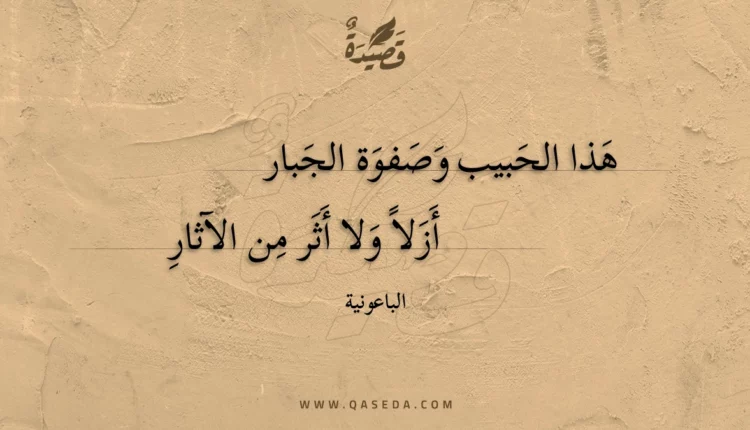 قَصِيْدَةٌ
هَذا الحَبيب وَصَفوَة الجَبار
أَزَلاً وَلا أَثَر مِن الآثارِ
الباعونية
WWW.QASEDA.COM